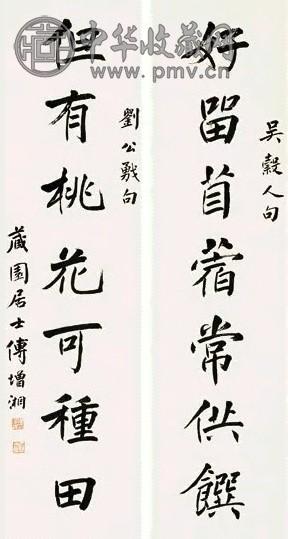 中华收藏网
www.pmv.cn
吳穀人句
好留苜蓿常供饌
劉公㦷句
但有桃花可種田
藏園居士傅增湘